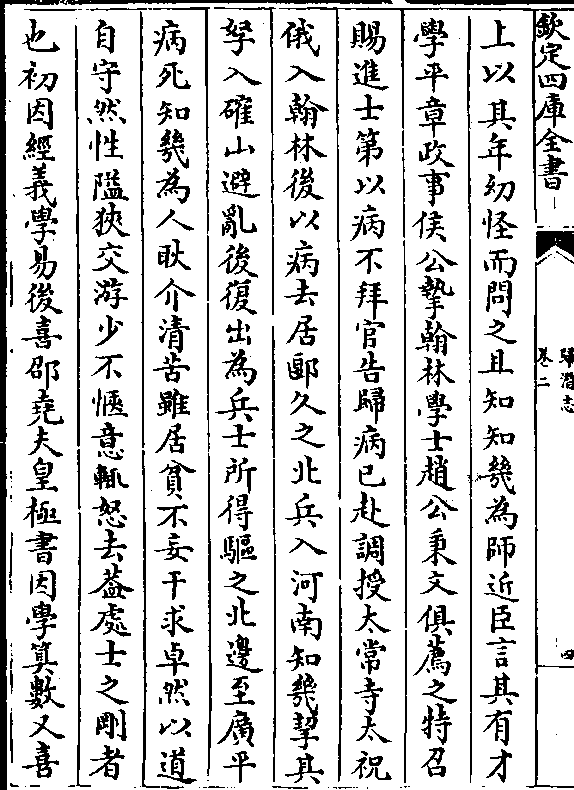 欽定四庫全書
歸潛志
卷二
四
上以其年幼怪而問之且知知幾為師近臣言其有才
學平章政事侯公摯翰林學士趙公秉文俱薦之特召
賜進士第以病不拜官告歸病已赴調授太常寺太祝
俄入翰林後以病去居郾久之北兵入河南知幾挈其
孥入確山避亂後復出為兵士所得驅之北邊至廣平
病死知幾為人耿介清苦雖居貧不妄干求卓然以道
自守然性隘狹交游少不愜意輒怒去葢處士之剛者
也初因經義學易後喜邵堯夫皇極書因學算數又喜